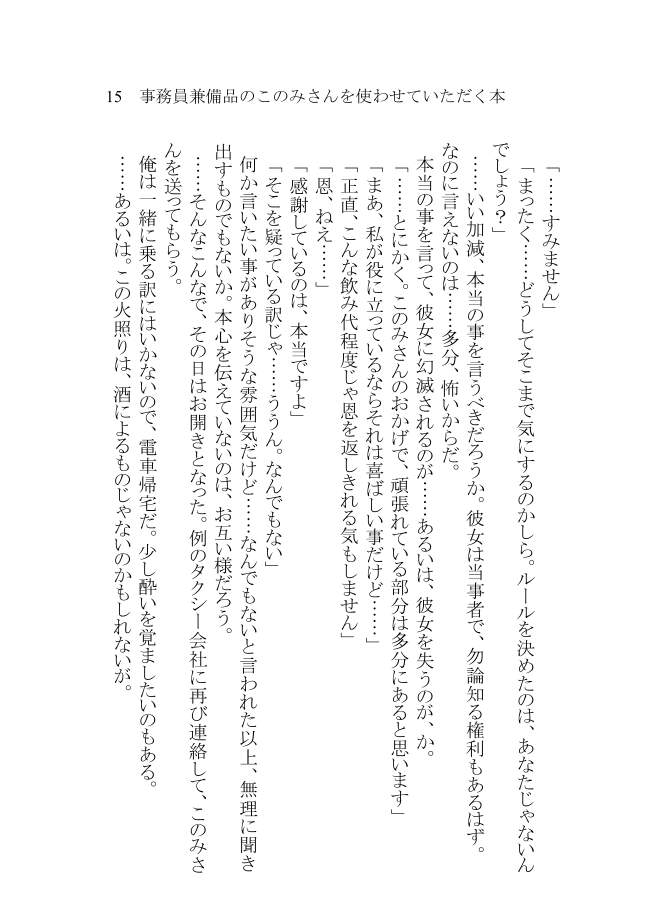 15　事務員兼備品のこのみさんを使わせていただく本
「……すみません」
「まったく……どうしてそこまで気にするのかしら。ルールを決めたのは、あなたじゃないん
でしょう？」
……いい加減、本当の事を言うべきだろうか。彼女は当事者で、勿論知る権利もあるはず。
なのに言えないのは……多分、怖いからだ。
本当の事を言って、彼女に幻滅されるのが……あるいは、彼女を失うのが、か。
「……とにかく。このみさんのおかげで、頑張れている部分は多分にあると思います」
「まあ、私が役に立っているならそれは喜ばしい事だけど……」
「正直、こんな飲み代程度じゃ恩を返しきれる気もしません」
「恩、ねえ……」
「感謝しているのは、本当ですよ」
「そこを疑っている訳じゃ……ううん。なんでもない」
何か言いたい事がありそうな雰囲気だけど……なんでもないと言われた以上、無理に聞き
出すものでもないか。本心を伝えていないのは、お互い様だろう。
……そんなこんなで、その日はお開きとなった。例のタクシー会社に再び連絡して、このみさ
んを送ってもらう。
俺は一緒に乗る訳にはいかないので、電車帰宅だ。少し酔いを覚ましたいのもある。
……あるいは。この火照りは、酒によるものじゃないのかもしれないが。